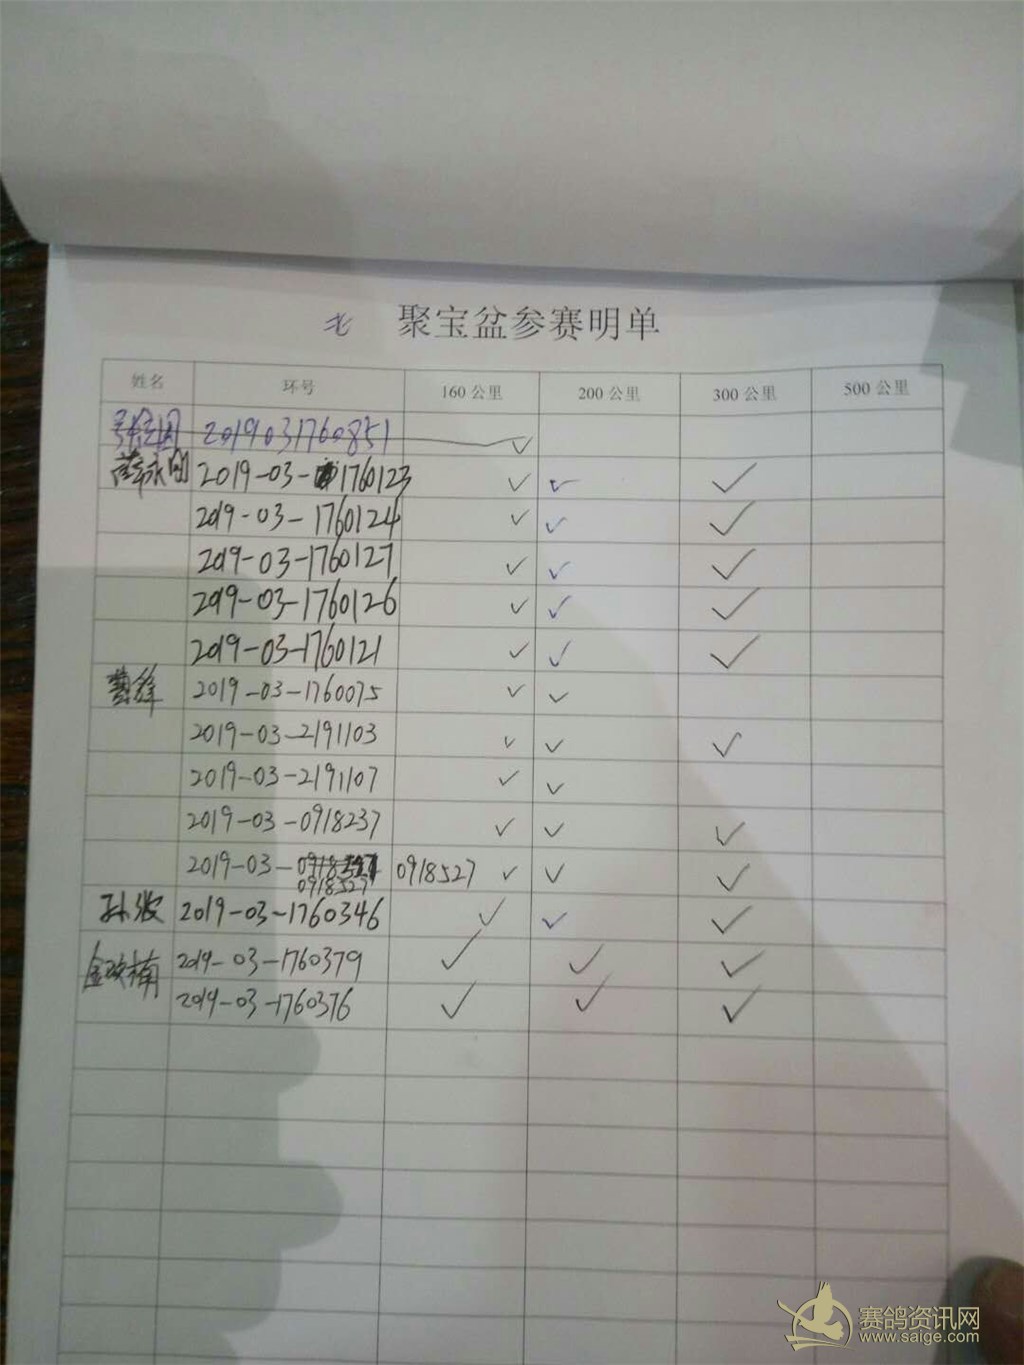 老 聚宝盆参赛明单
姓名 环号 160公里 200公里 300公里 500公里
2019031760851 ✓
薛永刚 2019-03-1760123 ✓ ✓ ✓
2019-03-1760124 ✓ ✓ ✓
2019-03-1760127 ✓ ✓ ✓
2019-03-1760126 ✓ ✓ ✓
2019-03-1760121 ✓ ✓ ✓
2019-03-1760075 ✓ ✓
2019-03-2191103 ✓ ✓ ✓
2019-03-2191107 ✓ ✓
2019-03-0918237 ✓ ✓ ✓
2019-03- 0918527 ✓ ✓ ✓
0918527
孙波 2019-03-1760346 ✓ ✓ ✓
2019-03-1760379 ✓ ✓ ✓
2019-03-1760376 ✓ ✓ ✓
赛鸽资讯网
www.saige.com